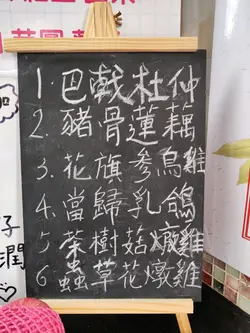 1. 巴戟杜仲
2. 豬骨蓮藕
3. 花旗參烏雞
4. 當歸乳鴿
5 茶樹菇燉雞
6. 蟲草花燉雞
潤